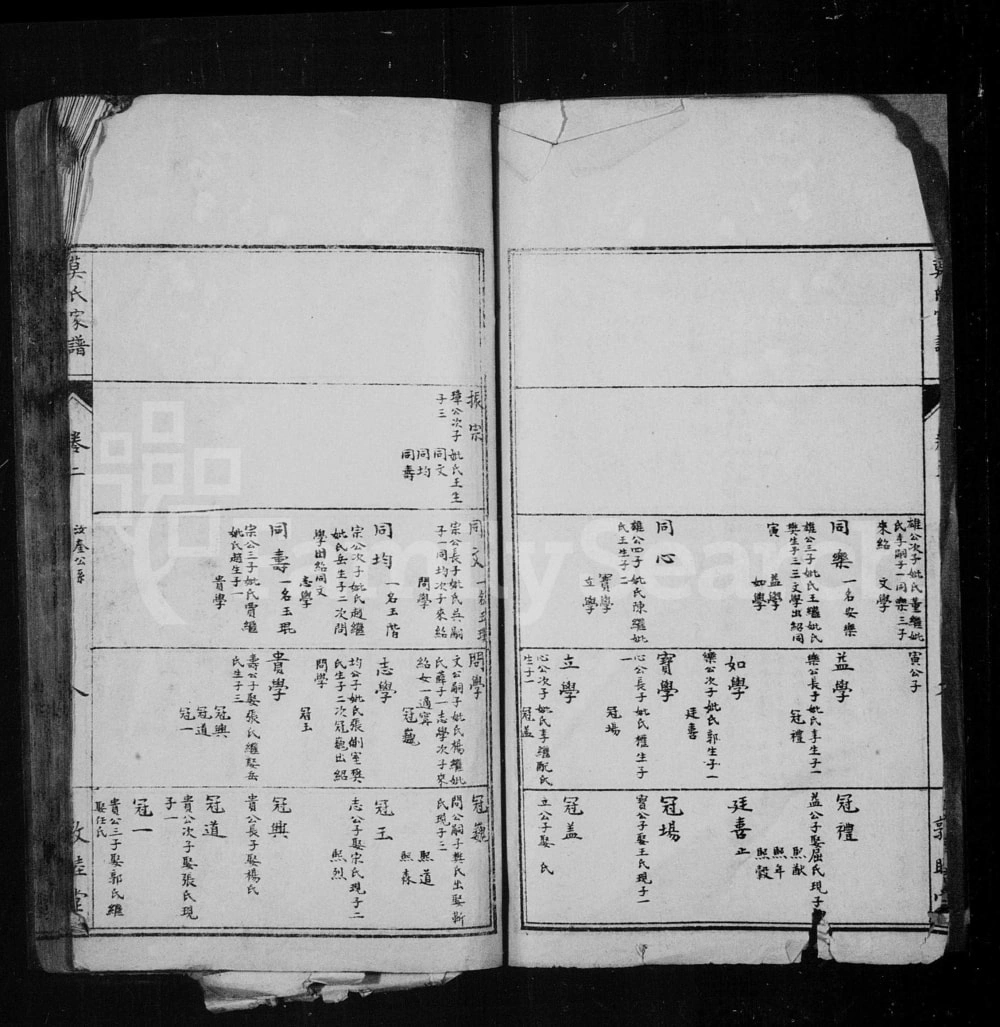 雄公次子妣氏董繼妣
氏李嗣子一同樂三子
來紹
文學
同樂
一名安樂
雄公三子妣氏王繼妣氏
樊生子三三文學出紹同
寅
益學
如學
同心
雄公四子妣氏陳繼妣
氏王生子二
寶學
立學
寅公子
益學
樂公長子妣氏李生子一
冠禮
如學
樂公次子妣氏郭生子一
廷喜
寶學
心公長子妣氏權生子
一
冠場
立學
心公次子妣氏李繼配氏
生子一
冠蓋
冠禮
益公子娶屈氏現子
熙猷
熙年
熙穀
廷喜
正
冠場
寶公子娶王氏現子一
冠蓋
立公子娶 氏
振宗
璋公次子妣氏王生
子三
同文
同均
同壽
同文
宗公長子妣氏吳嗣
子一同均次子來紹
問學
同均
一名玉階
宗公次子妣氏趙繼
妣氏岳生子二次問
學出紹同文
志學
同壽
一名玉琨
宗公三子妣氏賈繼
妣氏趙生子一
貴學
問學
文公嗣子妣氏楊繼妣
氏薛子一志學次子來
紹女一適寗
冠巍
志學
均公子妣氏張側室樊
氏生子二次冠巍出紹
問學
冠玉
貴學
壽公子娶張氏繼娶岳
氏生子三
冠興
冠道
冠一
冠巍
問公嗣子樊氏出娶靳
氏現子二
熙道
熙森
冠玉
志公子娶宋氏現子二
熙烈
冠興
貴公長子娶楊氏
冠道
貴公次子娶張氏現
子一
冠一
貴公三子娶郭氏繼
娶任氏
莫氏家譜
卷二
汝奎公系
八
敦睦堂